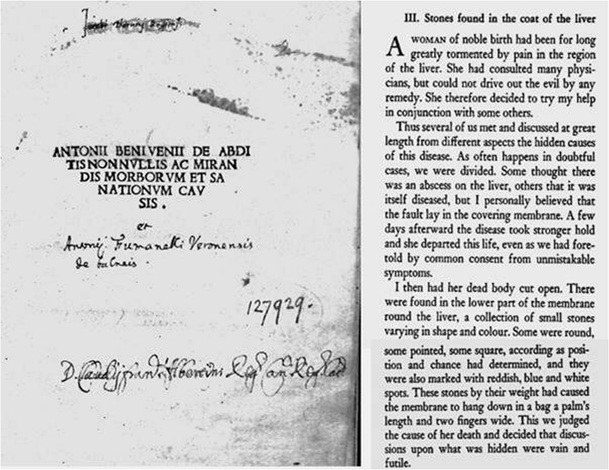 ANTONII BENIVENII DE ABDI
TIS NONNVLLIS AC MIRAN
DIS MORBORVM ET SA
NATIONVM CAV
SIS.
et
Antonij Fumanelli Veronensis
de balneis.
127929.
D.
III. Stones found in the coat of the liver
A WOMAN of noble birth had been for long
greatly tormented by pain in the region
of the liver. She had consulted many physi-
cians, but could not drive out the evil by any
remedy. She therefore decided to try my help
in conjunction with some others.
Thus several of us met and discussed at great
length from different aspects the hidden causes
of this disease. As often happens in doubtful
cases, we were divided. Some thought there
was an abscess on the liver, others that it was
itself diseased, but I personally believed that
the fault lay in the covering membrane. A few
days afterward the disease took stronger hold
and she departed this life, even as we had fore-
told by common consent from unmistakable
symptoms.
I then had her dead body cut open. There
were found in the lower part of the membrane
round the liver, a collection of small stones
varying in shape and colour. Some were round,
some pointed, some square, according as posi-
tion and chance had determined, and they
were also marked with reddish, blue and white
spots. These stones by their weight had caused
the membrane to hang down in a bag a palm's
length and two fingers wide. This we judged
the cause of her death and decided that discus-
sions upon what was hidden were vain and
futile.